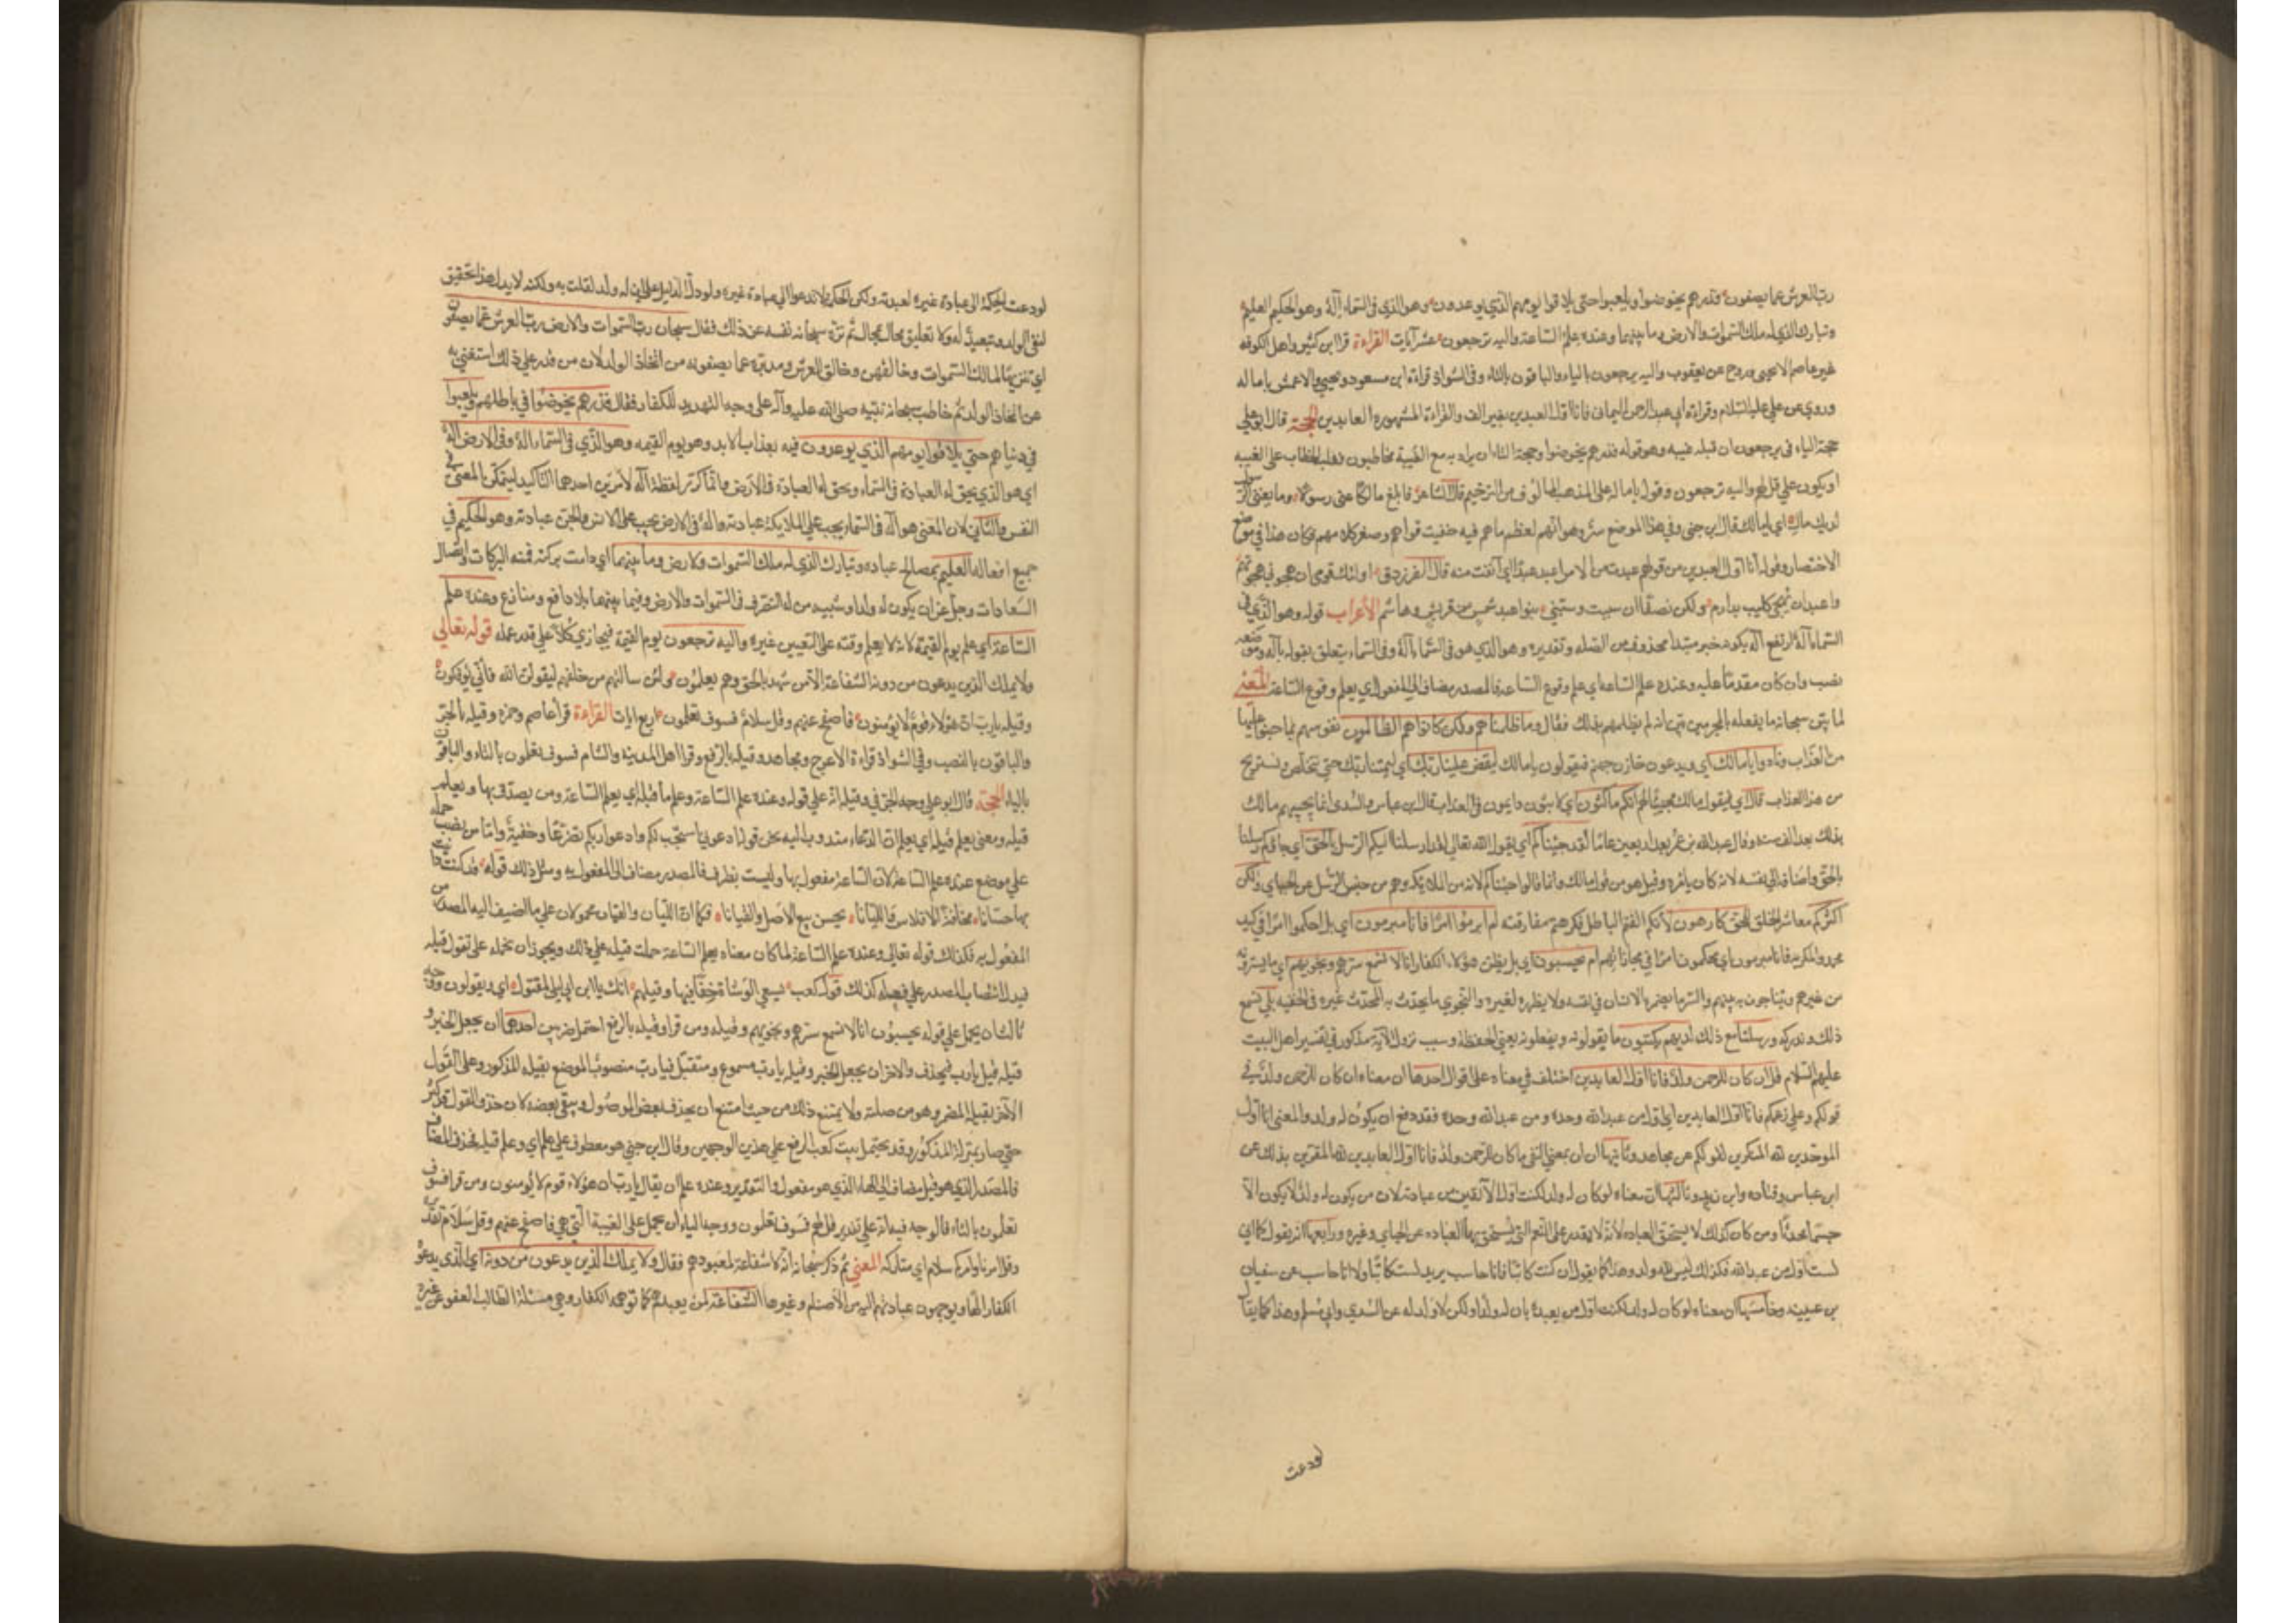 رب العرش عما يصفون فذرهم يخوضوا ويلعبوا حتى يلاقوا يومهم الذي يوعدون وهو الذي في السماء اله وهو الحكيم العليم
وتبارك الذي له ملك السموات والارض وما بينهما وعنده علم الساعة واليه ترجعون عشر آيات القراءة قرا ابن كثير واهل الكوفه
غير عاصم الا يحيى وروح عن يعقوب واليه يرجعون بالياء والباقون بالتاء وفي الشواذ قراءة ابن مسعود ويحيى والاعمش يا مال
وروي عن علي عليه السلام وقراءة ابي عبد الرحمن اليماني فانا اول العبدين بغير الف والقراءة المشهورة العابدين الحجة قال ابو علي
حجة الياء في يرجعون ان قبله غيبه وهو قوله فذرهم يخوضوا وحجة التاء ان يراد به مع الغيبة مخاطبون فغلب الخطاب على الغيبه
او يكون على قل لهم واليه ترجعون وقوله يا مال على المذهب المالوف من الترخيم قال الشاعر فابلغ مالكا عني رسولا وما يغني الرسول
لديك مال اي يا مالك قال ابن جني وفي هذا الموضع سر وهو انهم لعظم ما هم فيه خفيت قواهم وصغر كلامهم فكان هذا في موضع
الاختصار وقوله انا اول العبدين من قولهم عبدت من الامر اعبد عبدا اي انفت منه قال الفرزدق اولئك قومي ان هجوني هجوتهم
واعبد ان تهجى كليب بدارم ولكن نصفا ان سببت وسبني بنو عبد شمس من قريش وهاشم الأعراب قوله وهو الذي في
السماء اله ارتفع اله بكونه خبر مبتدا محذوف من الصله وتقديره وهو الذي هو في السماء اله وفي السماء يتعلق بقوله اله وموضعه
نصب وان كان مقدما عليه وعنده علم الساعه اي علم وقوع الساعة فالمصدر مضاف الى المفعول اي يعلم وقوع الساعة المعني
لما بين سبحانه ما يفعله بالمجرمين بين انه لم يظلمهم بذلك فقال وما ظلمناهم ولكن كانوا هم الظالمين نفوسهم بما جنوا عليها
من العذاب ونادوا يا مالك اي ويدعون خازن جهنم فيقولون يا مالك ليقض علينا ربك اي ليمتنا ربك حتى نتخلص ونستريح
من هذا العذاب قال اي فيقول مالك مجيبا لهم انكم ماكثون اي لابثون دايمون في العذاب قال ابن عباس والسدى انما يجيبهم مالك
بذلك بعد الف سنه وقال عبد الله بن عمر بعد اربعين عاما لقد جئناكم اي يقول الله تعالى لقد ارسلنا اليكم الرسل بالحق اي جاءكم رسلنا
بالحق واضافه الى نفسه لانه كان بامره وقيل هو من قول مالك وانما قال جئناكم لانه من الملائكه وهم من جنس الرسل عن الجبائي ولكن
اكثركم معاشر الخلق للحق كارهون لأنكم الفتم الباطل فكرهتم مفارقته ام ابرموا امرا فانا مبرمون اي بل احكموا امرا في كيد
محمد والمكر به فانا مبرمون اي محكمون امرا في مجازاتهم ام يحسبون اي بل يظن هؤلاء الكفار انا لا نسمع سرهم ونجويهم اي ما يسرونه
من غيرهم ويتناجون به بينهم والسر ما يضمره الانسان في نفسه ولا يظهره لغيره والنجوى ما يحدث به المحدث غيره في الخفيه بلى نسمع
ذلك وندركه ورسلنا مع ذلك لديهم يكتبون ما يقولونه ويفعلونه يعني الحفظه وسبب نزول الآية مذكور في تفسير اهل البيت
عليهم السلام قل ان كان للرحمن ولد فانا اول العابدين اختلف في معناه على اقوال احدها ان معناه ان كان للرحمن ولد في
قولكم وعلى زعمكم فانا اول العابدين اي اول من عبد الله وحده ومن عبد الله وحده فقد دفع ان يكون له ولد والمعنى انا اول
الموحدين لله المنكرين لقولكم عن مجاهد وثانيها ان ان بمعنى النفي ما كان للرحمن ولد فانا اول العابدين لله المقرين بذلك عن
ابن عباس وقتاده وابن زيد وثالثها ان معناه لو كان له ولد لكنت اول الآنفين من عبادته لان من يكون له ولد لا يكون الا
جسما محدثا ومن كان كذلك لا يستحق العباده لأنه لا يقدر على النعم التي يستحق بها العباده عن الجبائي وغيره ورابعها انه يقول كما اي
لست اول من عبد الله فكذلك ليس لله ولد وهذا كما يقول ان كنت كاتبا فانا حاسب يريد لست كاتبا ولا انا حاسب عن سفيان
بن عيينه وخامسها ان معناه لو كان له ولد لكنت اول من يعبده بان له ولدا ولكن لا ولد له عن السدي وابي مسلم وهذا كما يقال
لودعت
لودعت الحكمة الى عبادة غيره لعبدته ولكن الحكمة لا تدعوا الى عبادة غيره ولو دل الدليل على ان له ولد لقلت به ولكنه لا يدل فهذا تحقيق
لنفي الولد وتبعيد له ولانه تعليق محال بمحال ثم نزه سبحانه نفسه عن ذلك فقال سبحان رب السموات والارض رب العرش عما يصفون
اي تنزيها لمالك السموات وخالقهن وخالق العرش ومدبره عما يصفونه من اتخاذ الولد لان من قدر على ذلك استغنى به
عن اتخاذ الولد ثم خاطب سبحانه نبيه صلى الله عليه وآله على وجه التهديد للكفار فقال فذرهم يخوضوا في باطلهم ويلعبوا
في دنياهم حتى يلاقوا يومهم الذي يوعدون فيه بعذاب الابد وهو يوم القيمه وهو الذي في السماء اله وفي الارض اله
اي هو الذي يحق له العبادة في السماء ويحق له العبادة في الارض وانما كرر لفظة اله لأمرين احدهما التأكيد ليتمكن المعنى في
النفس والثاني لان المعنى هو اله في السماء يجب على الملايكة عبادته واله في الارض يجب على الانس والجن عبادته وهو الحكيم في
جميع افعاله العليم بمصالح عباده وتبارك الذي له ملك السموات والارض وما بينهما اي دامت بركته فمنه البركات وايصال
السعادات وجل عن ان يكون له ولد او شبيه من له التصرف في السموات والارض وفيما بينهما بلا دافع ومنازع وعنده علم
الساعة اي علم يوم القيمة لانه لا يعلم وقته على التعيين غيره واليه ترجعون يوم القيمة فيجازي كلا على قدر عمله قوله تعالى
ولا يملك الذين يدعون من دونه الشفاعة الا من شهد بالحق وهم يعلمون ولئن سالتهم من خلقهم ليقولن الله فاني يؤفكون
وقيله يا رب ان هؤلاء قوم لا يؤمنون فاصفح عنهم وقل سلام فسوف تعلمون اربع ايات القراءة قرا عاصم وحمزه وقيله بالجر
والباقون بالنصب وفي الشواذ قراءة الاعرج ومجاهد وقيله بالرفع وقرا اهل المدينه والشام فسوف تعلمون بالتاء والباقون
بالياء الحجة قال ابو علي وجه الجر في وقيله انه على قوله وعنده علم الساعة وعلم قيله اي يعلم الساعة ومن يصدق بها ويعلم
قيله ومعنى يعلم قيله اي يعلم ان الدعاء مندوب اليه نحو قوله ادعوني استجب لكم وادعوا ربكم تضرعا وخفية واما من نصب حمله
على موضع عنده علم الساعة لان الساعة مفعول بها وليست بظرف فالمصدر مضاف الى المفعول به ومثل ذلك قوله قد كنت داينت
بها حسانا مخافة الافلاس والليانا يحسن بيع الاصل والقيانا فكما ان الليان والقيان محمولان على ما اضيف اليه المصدر من
المفعول به فكذلك قوله تعالى وعنده علم الساعة لما كان معناه يعلم الساعة حملت قيله على ذلك ويجوز ان تحمله على تقول قيله
فيدل انتصاب المصدر على فعله كذلك قول كعب يسعى الوشاة جنابيها وقيلهم انك يا ابن ابي سلمى لمقتول اي ويقولون ووجه
ثالث ان يحمل على قوله يحسبون انا لا نسمع سرهم ونجويهم وقيله ومن قرا وقيله بالرفع احتمل ضربين احدهما ان يجعل الخبر و
قيله قيل يا رب فيحذف والاخر ان يجعل الخبر وقيله يا رب مسموع ومتقبل فيا رب منصوب الموضع بقيله المذكور وعلى القول
الآخر بقيله المضمر وهو من صلته ولا يمتنع ذلك من حيث امتنع ان يحذف بعض الموصول ويبقى بعضه لان حذف القول قد كثر
حتى صار بمنزلة المذكور وقد يحتمل بيت كعب الرفع على هذين الوجهين وقال ابن جني هو معطوف على علم اي وعلم قيله فحذف المضاف
فالمصدر الذي هو قيل مضاف الى الهاء الذي هو مفعول والتقدير وعنده علم ان يقال يا رب ان هؤلاء قوم لا يؤمنون ومن قرا فسوف
تعلمون بالتاء فالوجه فيه انه على تقدير قل لهم فسوف تعلمون ووجه الياء ان يحمل على الغيبة التي هي فاصفح عنهم وقل سلام تقديره
وقل امرنا وامركم سلام اي متاركه المعني ثم ذكر سبحانه انه لا شفاعة لمعبودهم فقال ولا يملك الذين يدعون من دونه اي الذي يدعوه
الكفار الها ويوجهون عبادتهم اليه من الأصنام وغيرها الشفاعة لمن يعبدهم كما توهمه الكفار وهي مسئلة الطالب العفو عن غيره